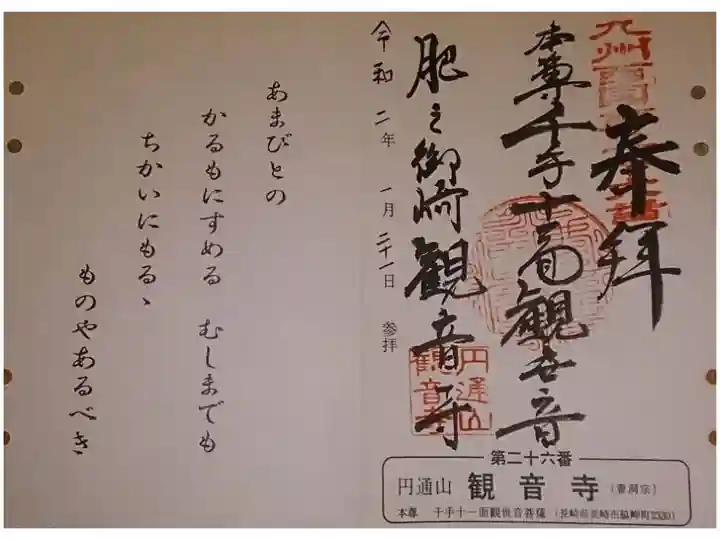 奉拝
本尊千手十一面観世音
肥之御崎観音寺
令和二年一月二十一日参拝
円通山
観音寺
第二十六番
円通山 観音寺 (曹洞宗)
本尊 千手十一面観世音菩薩 (長崎県長崎市脇岬町2330)
あまびとの
かるもにすめる むしまでも
ちかいにもるゝ
ものやあるべき